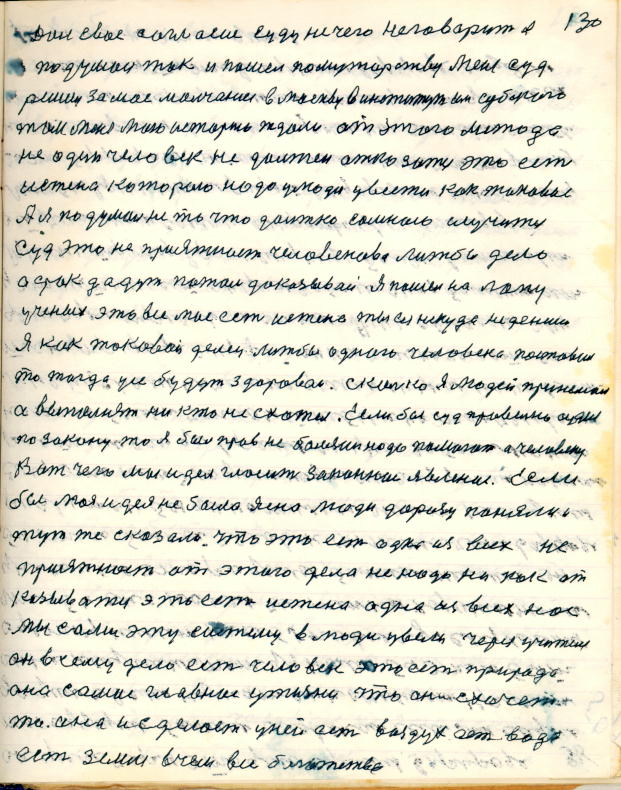 130
Дал свое согласие суду нечего неговорит я
подумал так и пошел помутарству Меня суд
решил замое молчание в москву в институт им субского
там меня мою историю ждали от этого метода
не один человек не должен отказати это ест
истена которого надо умоди увести как таковое
А я подумал не то что должно самною случити
Суд это не приятност человекова литбы дело
а срок дадут потом доказывай Я пошел на лапу
ученых это все мое ест истена ты ея некуда неденеш
Я как таковой делец литбы одного человека поставил
то тогда уже будут здоровая. Сколко я людей принемал
а выполнят ни кто не схотел. Если бы суд провелно судил
по закону то я был прав не болящи надо помогат а человеку
Вот чего мы идея гласит законное явление. Если
бы моя идея не была ясна люди дорогу поняли и
тут же сказали что это ест одно из всех не
приятност от этого дела не надо ни как от
казывати это ест истена одна из всех нас
мы сами эту систему в люди увели через учителя
он в чему дело ест человек это ест природа
она самое главное ужизни что она схочет
то она и сделает уней ест воздух ест вода
ест земля в чем все богатство